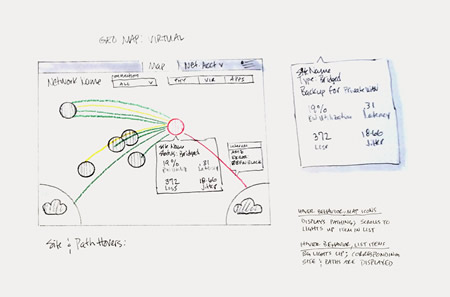 GEO MAP: VIRTUAL
Map
Net. Acct v
Network Name
ALL v
PHY
VIR
APPS
Site Name
Status: Bridged
19%
.31
Latency
372
18.66
Loss
Jitter
Site Name
Type: Bridged
Backup for Private WAN
19%
.31
Latency
372
18.66
Loss
Jitter
Site & Path Hovers:
HOVER BEHAVIOR, MAP ICONS
DISPLAYS PATHING; SCROLLS TO
LIGHTS UP ITEM IN LIST
HOVER BEHAVIOR, LIST ITEMS
BG LIGHTS UP; CORRESPONDING
SITE & PATHS ARE DISPLAYED